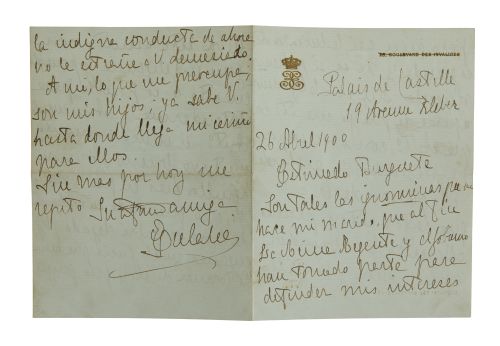 la indigna conducta de ahora
no le extrañe a V. demasiado.
A mi, lo que me preocupa,
son mis hijos; ya sabe V.
hasta donde llega mi cariño
para ellos.
Sin mas por hoy me
repito Su afma amiga
Eulalia
BOULEVARD DES INVALIDES
Palais de Castille
19 Avenue Kleber
26 Abril 1900
Estimado Burguete
Son tales las ignominias que me
hace mi marido, que al fin
la Reina Regente y el Gobierno
han tomado parte para
defender mis intereses